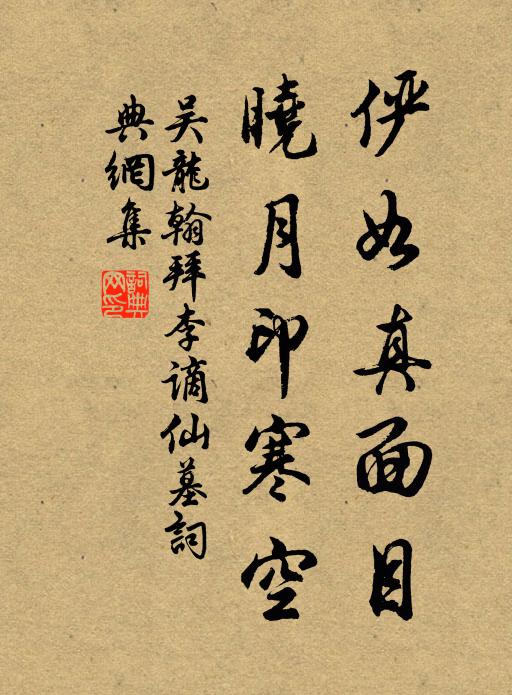 俨如真面目
曉月印寒空
吴龍翰拜李谪仙墓詞
典網集
詞典網印